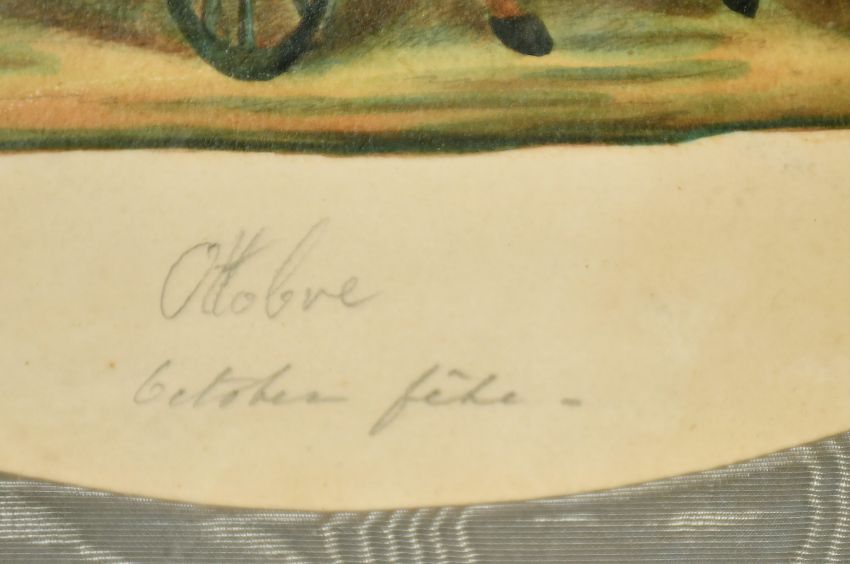 Ottobre
October fête -